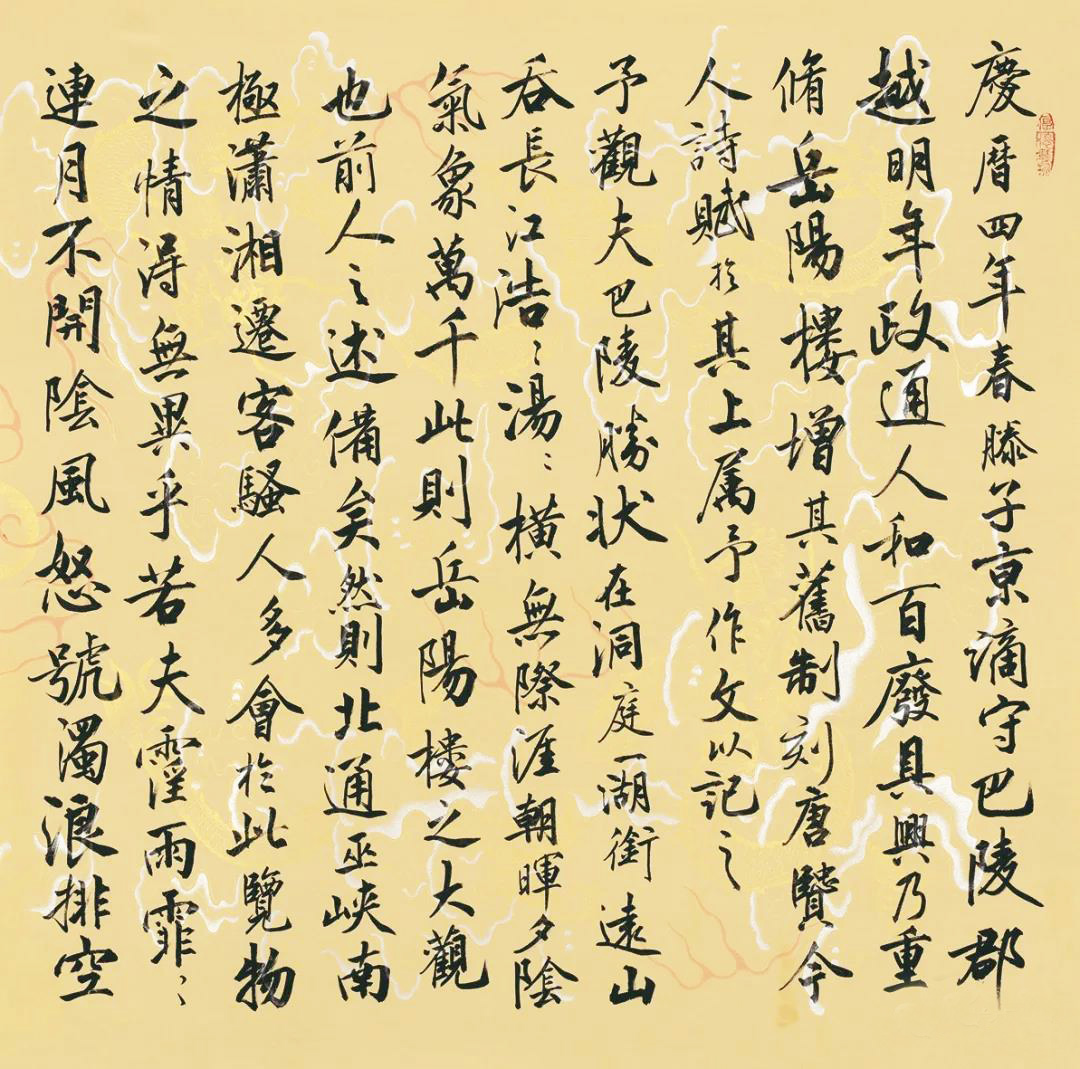 慶曆四年春滕子京謫守巴陵郡
越明年政通人和百廢具興乃重
脩岳陽樓增其舊制刻唐賢今
人詩賦於其上属予作文以記之
予觀夫巴陵勝状在洞庭一湖銜遠山
吞長江浩〻湯〻橫無際涯朝暉夕陰
氣象萬千此則岳陽樓之大觀
也前人之述備矣然則北通巫峽南
極瀟湘遷客騷人多會於此覽物
之情得無異乎若夫霪雨霏〻
連月不開陰風怒號濁浪排空